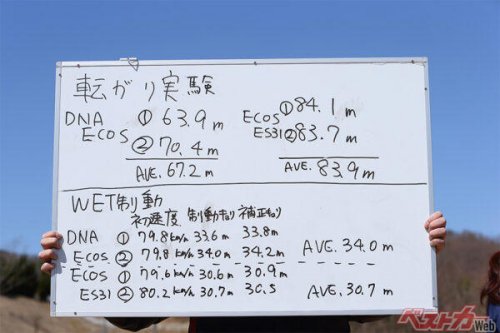 転がり実験
DNA ① 63.9m
ECOS ② 70.4m
AVE. 67.2 m
ECOS ① 84.1m
ES31 ② 83.7m
AVE. 83.9m
WET制動
初速度 制動キョリ 補正キョリ
DNA ① 79.8km/h 33.6m 33.8m
ECOS ② 79.8km/h 34.0m 34.2m AVE. 34.0m
ECOS ① 79.6km/h 30.6m 30.9m
ES31 ② 80.2km/h 30.7m 30.5 AVE. 30.7m
ベストカーWeb